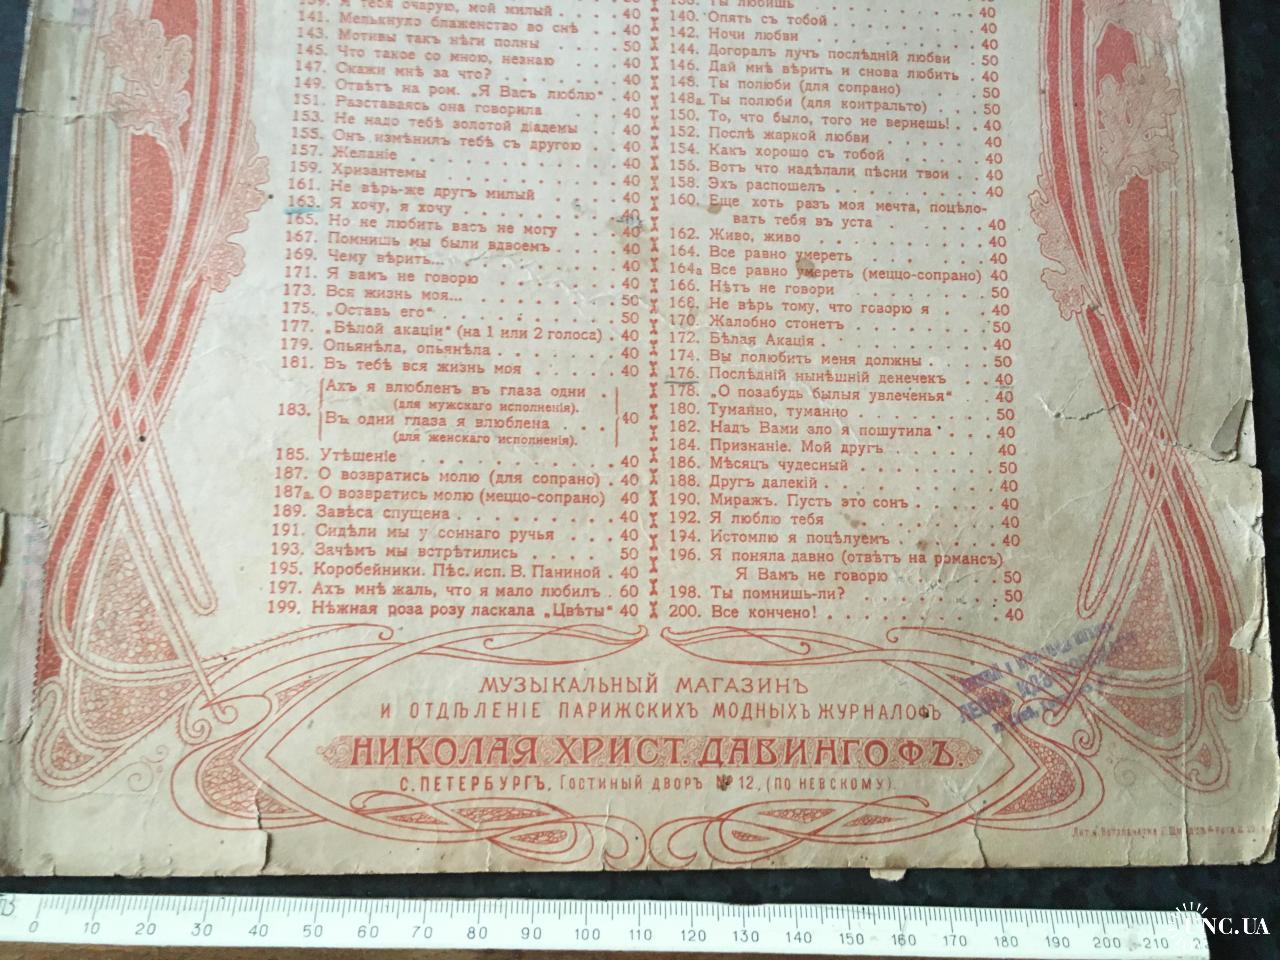 Я тебя очарую, мой милый . 40
141. Мелькнуло блаженство во снѣ . 40
143. Мотивы такъ нѣги полны . 50
145. Что такое со мною, незнаю . 40
147. Скажи мнѣ за что? . 40
149. Отвѣтъ на ром. „Я Васъ люблю“ . 40
151. Разставаясь она говорила . 40
153. Не надо тебѣ золотой дiадемы . 40
155. Онъ измѣнилъ тебѣ съ другою . 40
157. Желанiе . 40
159. Хризантемы . 40
161. Не вѣрь-же другъ милый . 40
163. Я хочу, я хочу . 40
165. Но не любить васъ не могу . 40
167. Помнишь мы были вдвоемъ . 40
169. Чему вѣрить... . 40
171. Я вамъ не говорю . 40
173. Вся жизнь моя... . 50
175. „Оставь его“ . 50
177. „Бѣлой акацiи“ (на 1 или 2 голоса) . 40
179. Опьянѣла, опьянѣла . 40
181. Въ тебѣ вся жизнь моя . 40
183. Ахъ я влюбленъ въ глаза одни .
(для мужскаго исполненiя).
Въ одни глаза я влюблена . 40
(для женскаго исполненiя).
185. Утѣшенiе . 40
187. О возвратись молю (для сопрано) . 40
187а. О возвратись молю (меццо-сопрано) 40
189. Завѣса спущена . 40
191. Сидѣли мы у соннаго ручья . 40
193. Зачѣмъ мы встрѣтились . 50
195. Коробейники. Пѣс. исп. В. Паниной . 40
197. Ахъ мнѣ жаль, что я мало любилъ . 60
199. Нѣжная роза розу ласкала „Цвѣты“ 40
Ты любишь . 40
140. Опять съ тобой . 40
142. Ночи любви . 40
144. Догоралъ лучъ послѣднiй любви . 50
146. Дай мнѣ вѣрить и снова любить . 40
148. Ты полюби (для сопрано) . 50
148а. Ты полюби (для контральто) . 50
150. То, что было, того не вернешь! . 40
152. Послѣ жаркой любви . 50
154. Какъ хорошо съ тобой . 40
156. Вотъ что надѣлали пѣсни твои . 40
158. Эхъ распошелъ . 40
160. Еще хоть разъ моя мечта, поцѣло-
вать тебя въ уста . 40
162. Живо, живо . 40
164. Все равно умереть . 40
164а Все равно умереть (меццо-сопрано) 40
166. Нѣтъ не говори . 50
168. Не вѣрь тому, что говорю я . 40
170. Жалобно стонетъ . 50
172. Бѣлая Акацiя . 40
174. Вы полюбить меня должны . 50
176. Послѣднiй нынѣшнiй денечекъ . 40
178. „О позабудь былыя увлеченья“ 40
180. Туманно, туманно . 50
182. Надъ Вами зло я пошутила . 40
184. Признанiе. Мой другъ . 40
186. Мѣсяцъ чудесный . 50
188. Другъ далекiй . 40
190. Миражъ. Пусть это сонъ . 40
192. Я люблю тебя . 40
194. Истомлю я поцѣлуемъ . 40
196. Я поняла давно (отвѣтъ на романсъ)
Я Вамъ не говорю . 50
198. Ты помнишь-ли? . 50
200. Все кончено! . 40
МУЗЫКАЛЬНЫЙ МАГАЗИНЪ
И ОТДѢЛЕНIЕ ПАРИЖСКИХЪ МОДНЫХЪ ЖУРНАЛОФЪ
НИКОЛАЯ ХРИСТ. ДАВИНГОФЪ.
С. ПЕТЕРБУРГЪ, ГОСТИНЫЙ ДВОРЪ № 12, (ПО НЕВСКОМУ).
0 10 20 30 40 50 60 70 80 90 100 110 120 130 140 150 160 170 180 190 200 210
0 10 20 30 40 50 60 70 80 90 100 110 120 130 140 150 160 170 180 190 200 210
UNC.UA